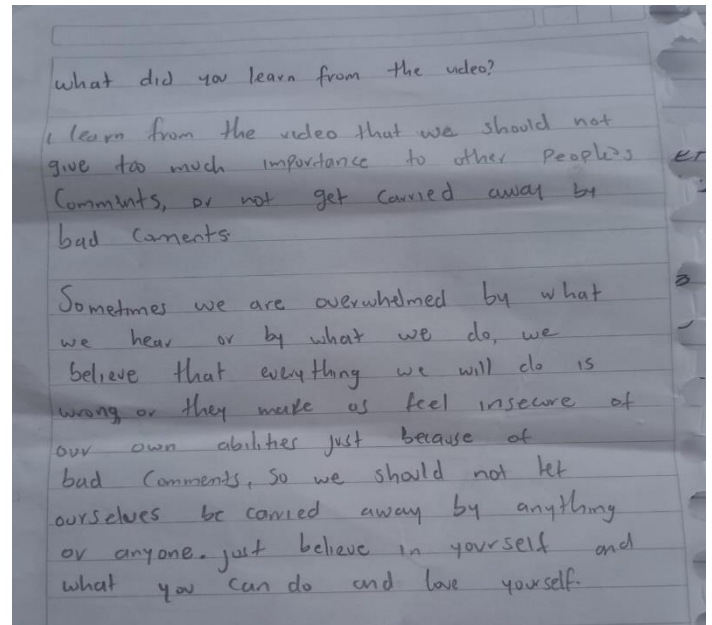 what did you learn from the video?
i learn from the video that we should not
give too much importance to other People's
Comments, or not get carried away by
bad Coments.
Sometimes we are overwhelmed by what
we hear or by what we do, we
believe that everything we will do is
wrong or they make as feel insecure of
our own abilities just because of
bad Comments, So we should not let
ourselves be carried away by anything
or anyone. just believe in yourself and
what you can do and love yourself.